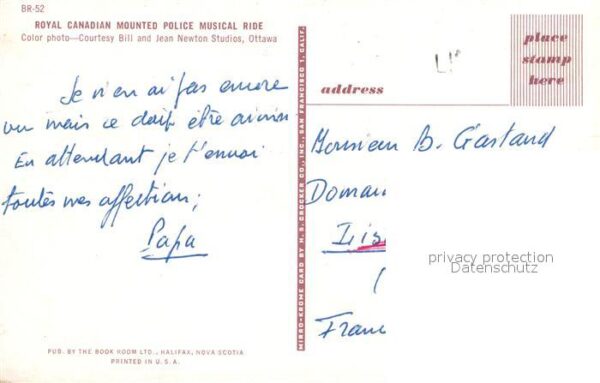 BR-52
ROYAL CANADIAN MOUNTED POLICE MUSICAL RIDE
Color photo—Courtesy Bill and Jean Newton Studios, Ottawa
place
stamp
here
address
Je n'en ai pas encore
vu mais ce doit être ainsi
En attendant je t'envoi
toutes mes affections;
Papa
Monsieur B.
Doman
Franc
MIRRO-KROME CARD BY H. S. CROCKER CO., INC., SAN FRANCISCO 1, CALIF.
privacy protection
Datenschutz
PUB. BY THE BOOK ROOM LTD., HALIFAX, NOVA SCOTIA
PRINTED IN U.S.A.